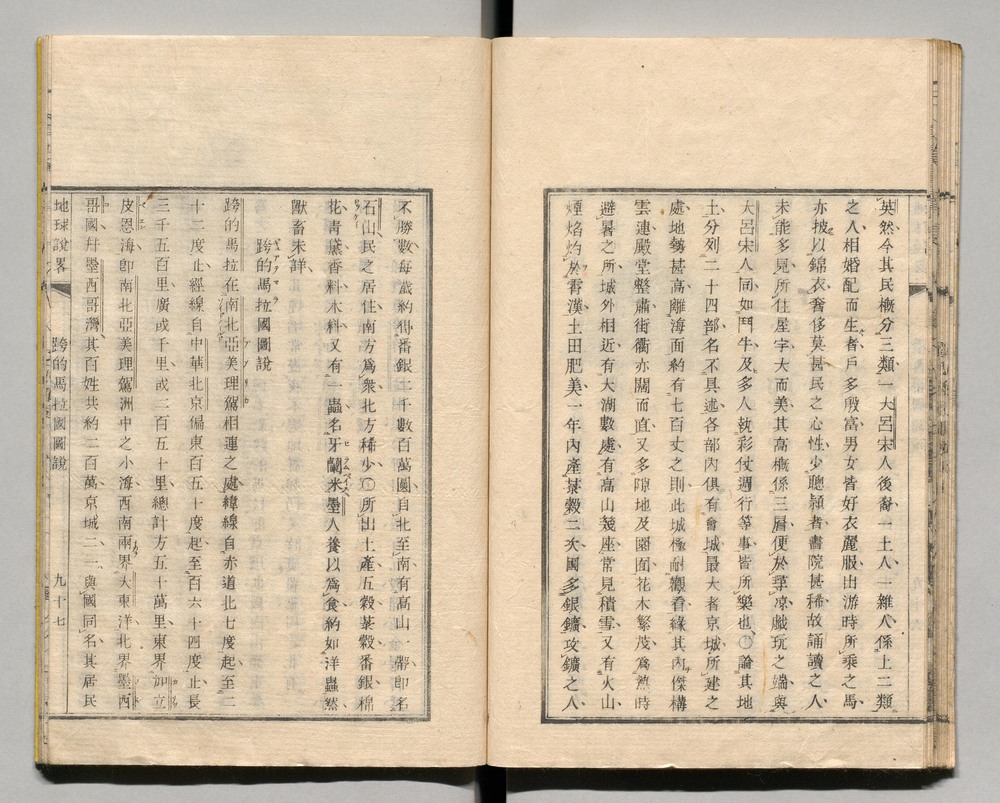 英然今其民概分三類一大呂宋人後裔一土人一雜人係上二類
之人相婚配而生者戶多殷富男女皆好衣麗服出游時所乘之馬
亦披以錦衣奢侈莫甚民之心性少聰穎者書院甚稀故誦讀之人
未能多見所住屋宇大而美其高概係三層便於乘涼戲玩之端與
大呂宋人同如鬥牛及多人執彩仗週行等事皆所樂也〇論其地
土分列二十四部名不具述各部內俱有會城最大者京城所建之
處地勢甚高離海面約有七百丈之則此城極耐觀看緣其內傑構
雲連殿堂整肅街衢亦闊而直又多隙地及園囿花木繁茂爲熱時
避暑之所城外相近有大湖數處有高山幾座常見積雪又有火山
煙焰灼於霄漢土田肥美一年內產菉穀二次國多銀鑛攻鑛之人
不勝數每歲約得番銀二千數百萬圓自北至南有高山一帶即名
石山民之居住南方爲衆北方稀少〇所出土產五穀菉穀番銀棉
花靑黛香料木料又有一蟲名牙蘭米墨人養以爲食約如洋蟲然
獸畜未詳
跨的馬拉國圖說
跨的馬拉在南北亞美理駕相連之處緯線自赤道北七度起至二
十二度止經線自中華北京偏東百五十度起至百六十四度止長
三千五百里廣或千里或二百五十里總計方五十萬里東界加立
皮恩海卽南北亞美理駕洲中之小海西南兩界大東洋北界墨西
哥國幷墨西哥灣其百姓共約二百萬京城二一與國同名其居民
地球說畧 跨的馬拉國圖說 九十七